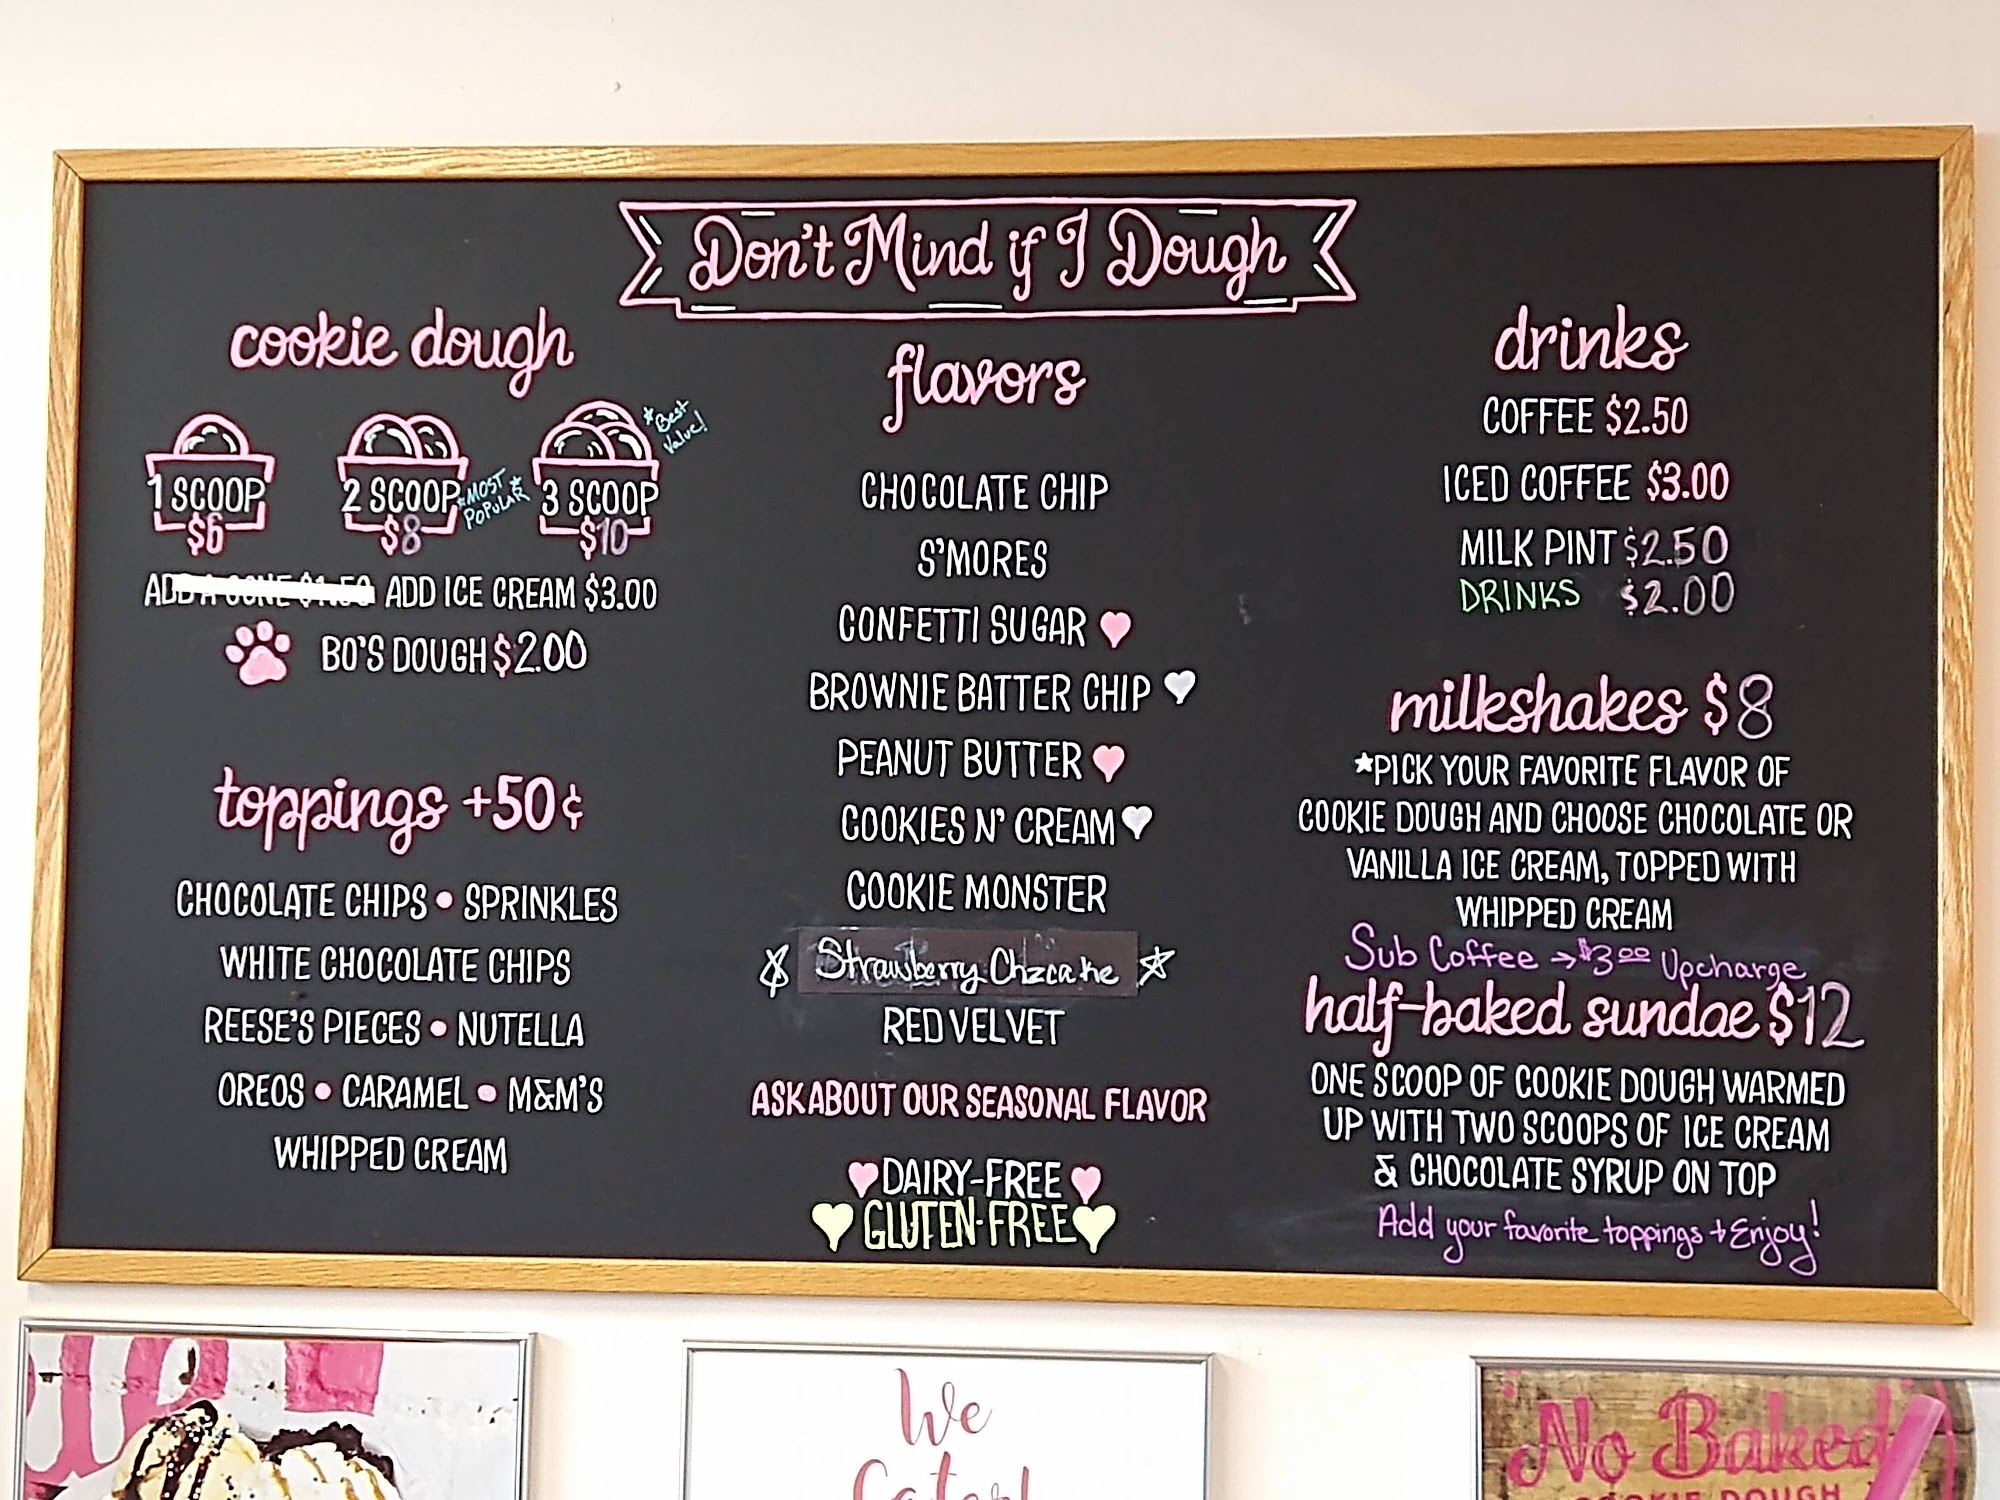 Don't Mind if I Dough
cookie dough
1 SCOOP
$6
2 SCOOP
$8
*MOST
POPULAR*
3 SCOOP
$10
*Best
Value!
ADD A CONE $1.50 ADD ICE CREAM $3.00
BO'S DOUGH $2.00
toppings +50¢
CHOCOLATE CHIPS • SPRINKLES
WHITE CHOCOLATE CHIPS
REESE'S PIECES • NUTELLA
OREOS • CARAMEL • M&M'S
WHIPPED CREAM
flavors
CHOCOLATE CHIP
S'MORES
CONFETTI SUGAR
BROWNIE BATTER CHIP
PEANUT BUTTER
COOKIES N' CREAM
COOKIE MONSTER
Strawberry Chzcake
RED VELVET
ASK ABOUT OUR SEASONAL FLAVOR
DAIRY-FREE
GLUTEN-FREE
drinks
COFFEE $2.50
ICED COFFEE $3.00
MILK PINT $2.50
DRINKS $2.00
milkshakes $8
*PICK YOUR FAVORITE FLAVOR OF
COOKIE DOUGH AND CHOOSE CHOCOLATE OR
VANILLA ICE CREAM, TOPPED WITH
WHIPPED CREAM
Sub Coffee → $3.00 Upcharge
half-baked sundae $12
ONE SCOOP OF COOKIE DOUGH WARMED
UP WITH TWO SCOOPS OF ICE CREAM
& CHOCOLATE SYRUP ON TOP
Add your favorite toppings + Enjoy!
We
Cater!
No Baked
COOKIE DOUGH